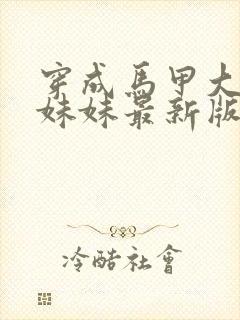 穿成馬甲大
妹妹最新版
冷酷社會